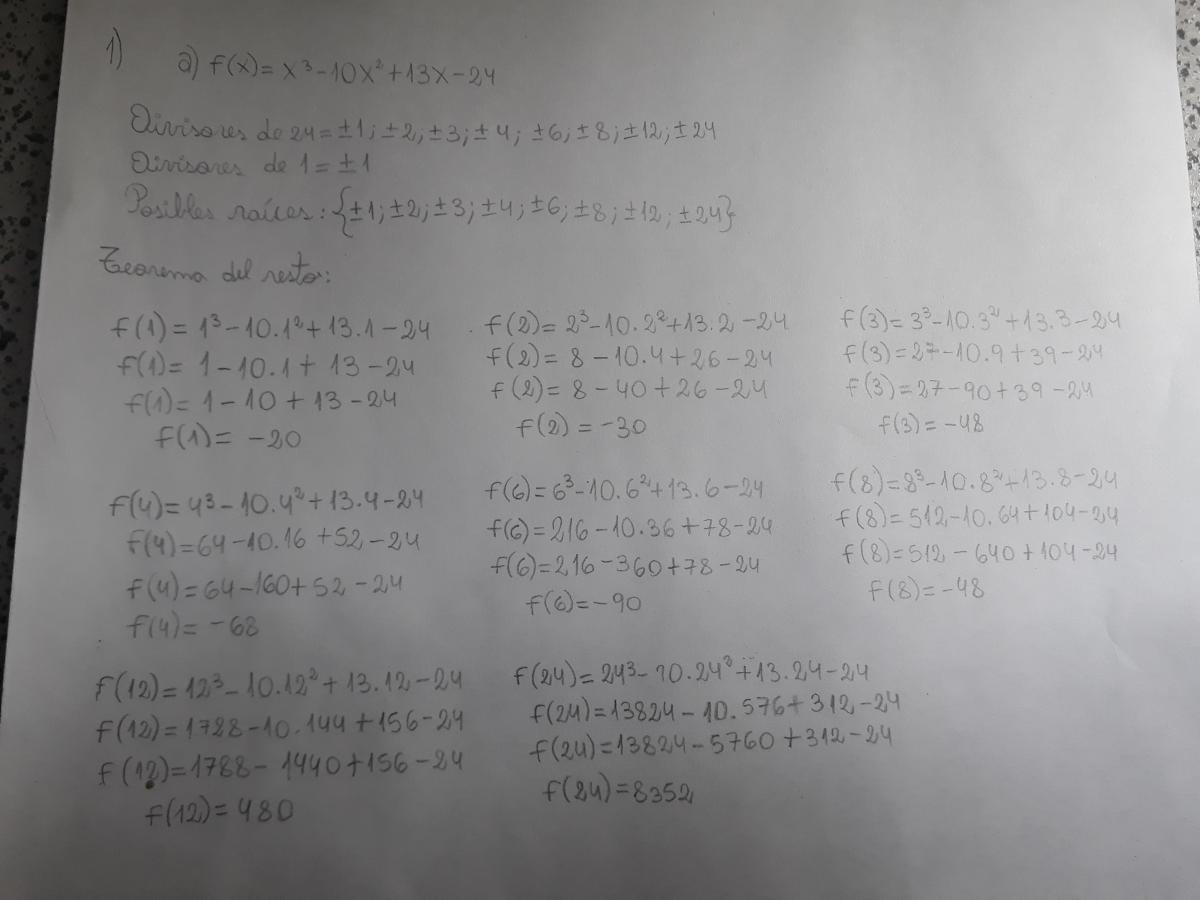 1)
a) f(x)= x³-10x²+13x-24
Divisores de 24= ±1; ±2; ±3; ±4; ±6; ±8; ±12; ±24
Divisores de 1= ±1
Posibles raíces: {±1; ±2; ±3; ±4; ±6; ±8; ±12; ±24}
Teorema del resto:
f(1)= 1³-10.1²+13.1-24
f(1)= 1-10.1+13-24
f(1)= 1-10+13-24
f(1)= -20
f(2)= 2³-10.2²+13.2-24
f(2)= 8-10.4+26-24
f(2)= 8-40+26-24
f(2)= -30
f(3)= 3³-10.3²+13.3-24
f(3)= 27-10.9+39-24
f(3)= 27-90+39-24
f(3)= -48
f(4)= 4³-10.4²+13.4-24
f(4)= 64-10.16+52-24
f(4)= 64-160+52-24
f(4)= -68
f(6)= 6³-10.6²+13.6-24
f(6)= 216-10.36+78-24
f(6)= 216-360+78-24
f(6)= -90
f(8)= 8³-10.8²+13.8-24
f(8)= 512-10.64+104-24
f(8)= 512-640+104-24
f(8)= -48
f(12)= 12³-10.12²+13.12-24
f(12)= 1728-10.144+156-24
f(12)= 1788-1440+156-24
f(12)= 480
f(24)= 24³-10.24²+13.24-24
f(24)= 13824-10.576+312-24
f(24)= 13824-5760+312-24
f(24)= 8352